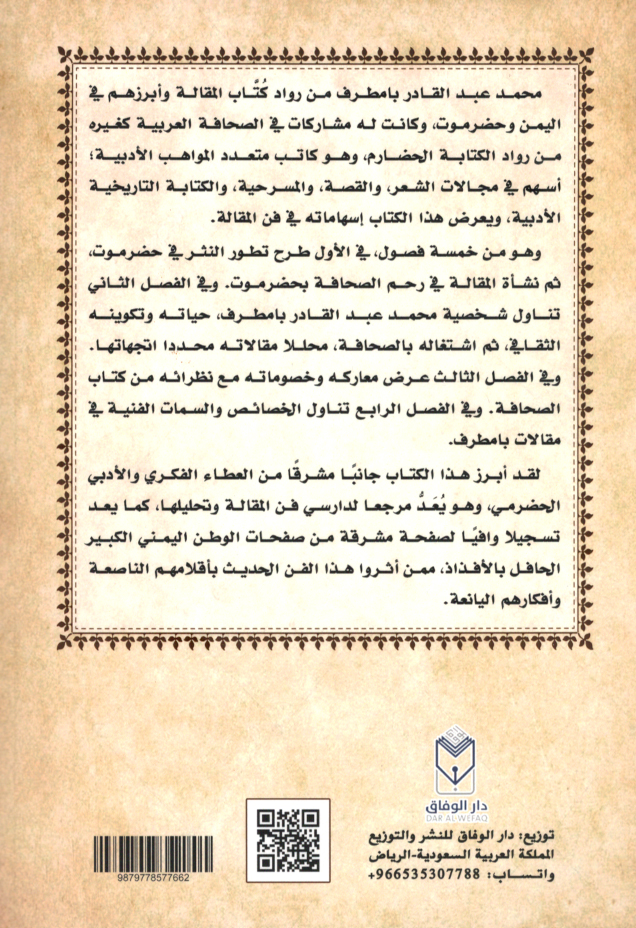 محمد عبد القادر بامطرف من رواد كُتَّاب المقالة وأبرزهم في
اليمن وحضرموت، وكانت له مشاركات في الصحافة العربية كغيره
من رواد الكتابة الحضارم، وهو كاتب متعدد المواهب الأدبية؛
أسهم في مجالات الشعر، والقصة، والمسرحية، والكتابة التاريخية
الأدبية، ويعرض هذا الكتاب إسهاماته في فن المقالة.
وهو من خمسة فصول، في الأول طرح تطور النثر في حضرموت،
ثم نشأة المقالة في رحم الصحافة بحضرموت. وفي الفصل الثاني
تناول شخصية محمد عبد القادر بامطرف، حياته وتكوينه
الثقافي، ثم اشتغاله بالصحافة، محللا مقالاته محددا اتجهاتها.
وفي الفصل الثالث عرض معاركه وخصوماته مع نظرائه من كتاب
الصحافة. وفي الفصل الرابع تناول الخصائص والسمات الفنية في
مقالات بامطرف.
لقد أبرز هذا الكتاب جانبًا مشرقًا من العطاء الفكري والأدبي
الحضرمي، وهو يُعَدُّ مرجعا لدارسي فن المقالة وتحليلها، كما يعد
تسجيلا وافيًا لصفحة مشرقة من صفحات الوطن اليمني الكبير
الحافل بالأفذاذ، ممن أثروا هذا الفن الحديث بأقلامهم الناصعة
وأفكارهم اليانعة.
دار الوفاق
DAR AL-WEFAQ
توزيع: دار الوفاق للنشر والتوزيع
المملكة العربية السعودية-الرياض
واتساب: 966535307788+
9879778577662